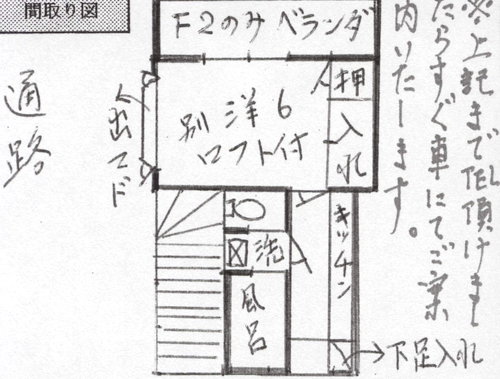 間取り図
F2のみベランダ
※上記までTEL頂けまし
たらすぐ車にてご案
内いたします。
通路
出マド
別洋6
ロフト付
押入れ
洗
風呂
キッチン
→下足入れ